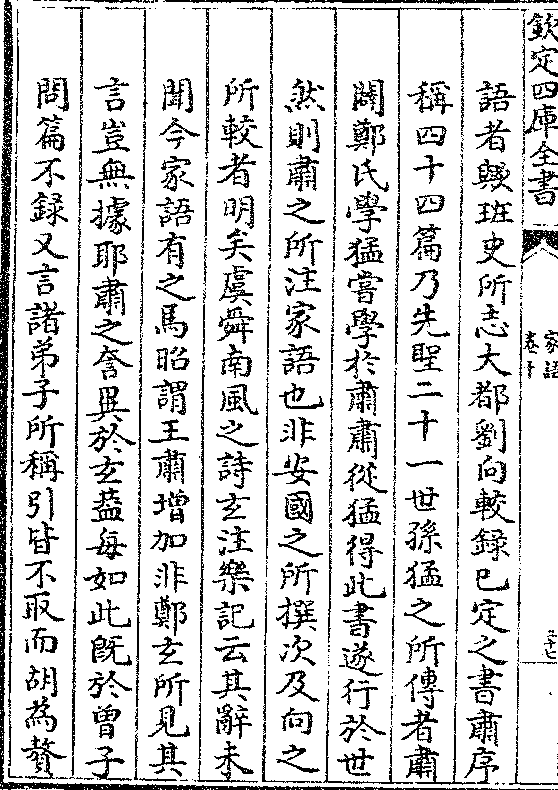 欽定四庫全書
家語
卷十
語者歟班史所志大都劉向較録已定之書肅序
稱四十四篇乃先聖二十一世孫猛之所傳者肅
闢鄭氏學猛嘗學於肅肅從猛得此書遂行於世
然則肅之所注家語也非安國之所撰次及向之
所較者明矣虞舜南風之詩𤣥注樂記云其辭未
聞今家語有之馬昭謂王肅増加非鄭𤣥所見其
言豈無據耶肅之誊異於𤣥葢每如此既於曽子
問篇不録又言諸弟子所稱引皆不取而胡為贅